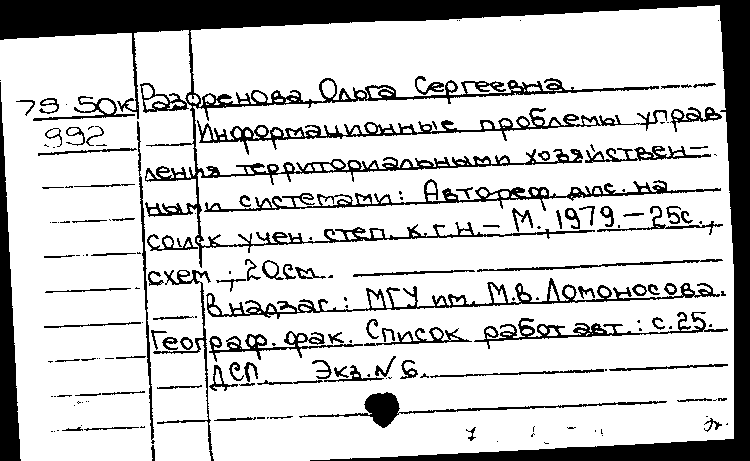 79 50к Разоренова, Ольга Сергеевна.
992 Информационные проблемы управ-
ления территориальными хозяйствен-
ными системами: Автореф. дис. на
соиск учен. степ. к.г.н. – М., 1979. – 25с.,
схем ; 20см.
В надзаг.: МГУ им. М.В. Ломоносова.
Географ. фак. Список работ авт.: с.25.
ДСП. Экз. № 6.